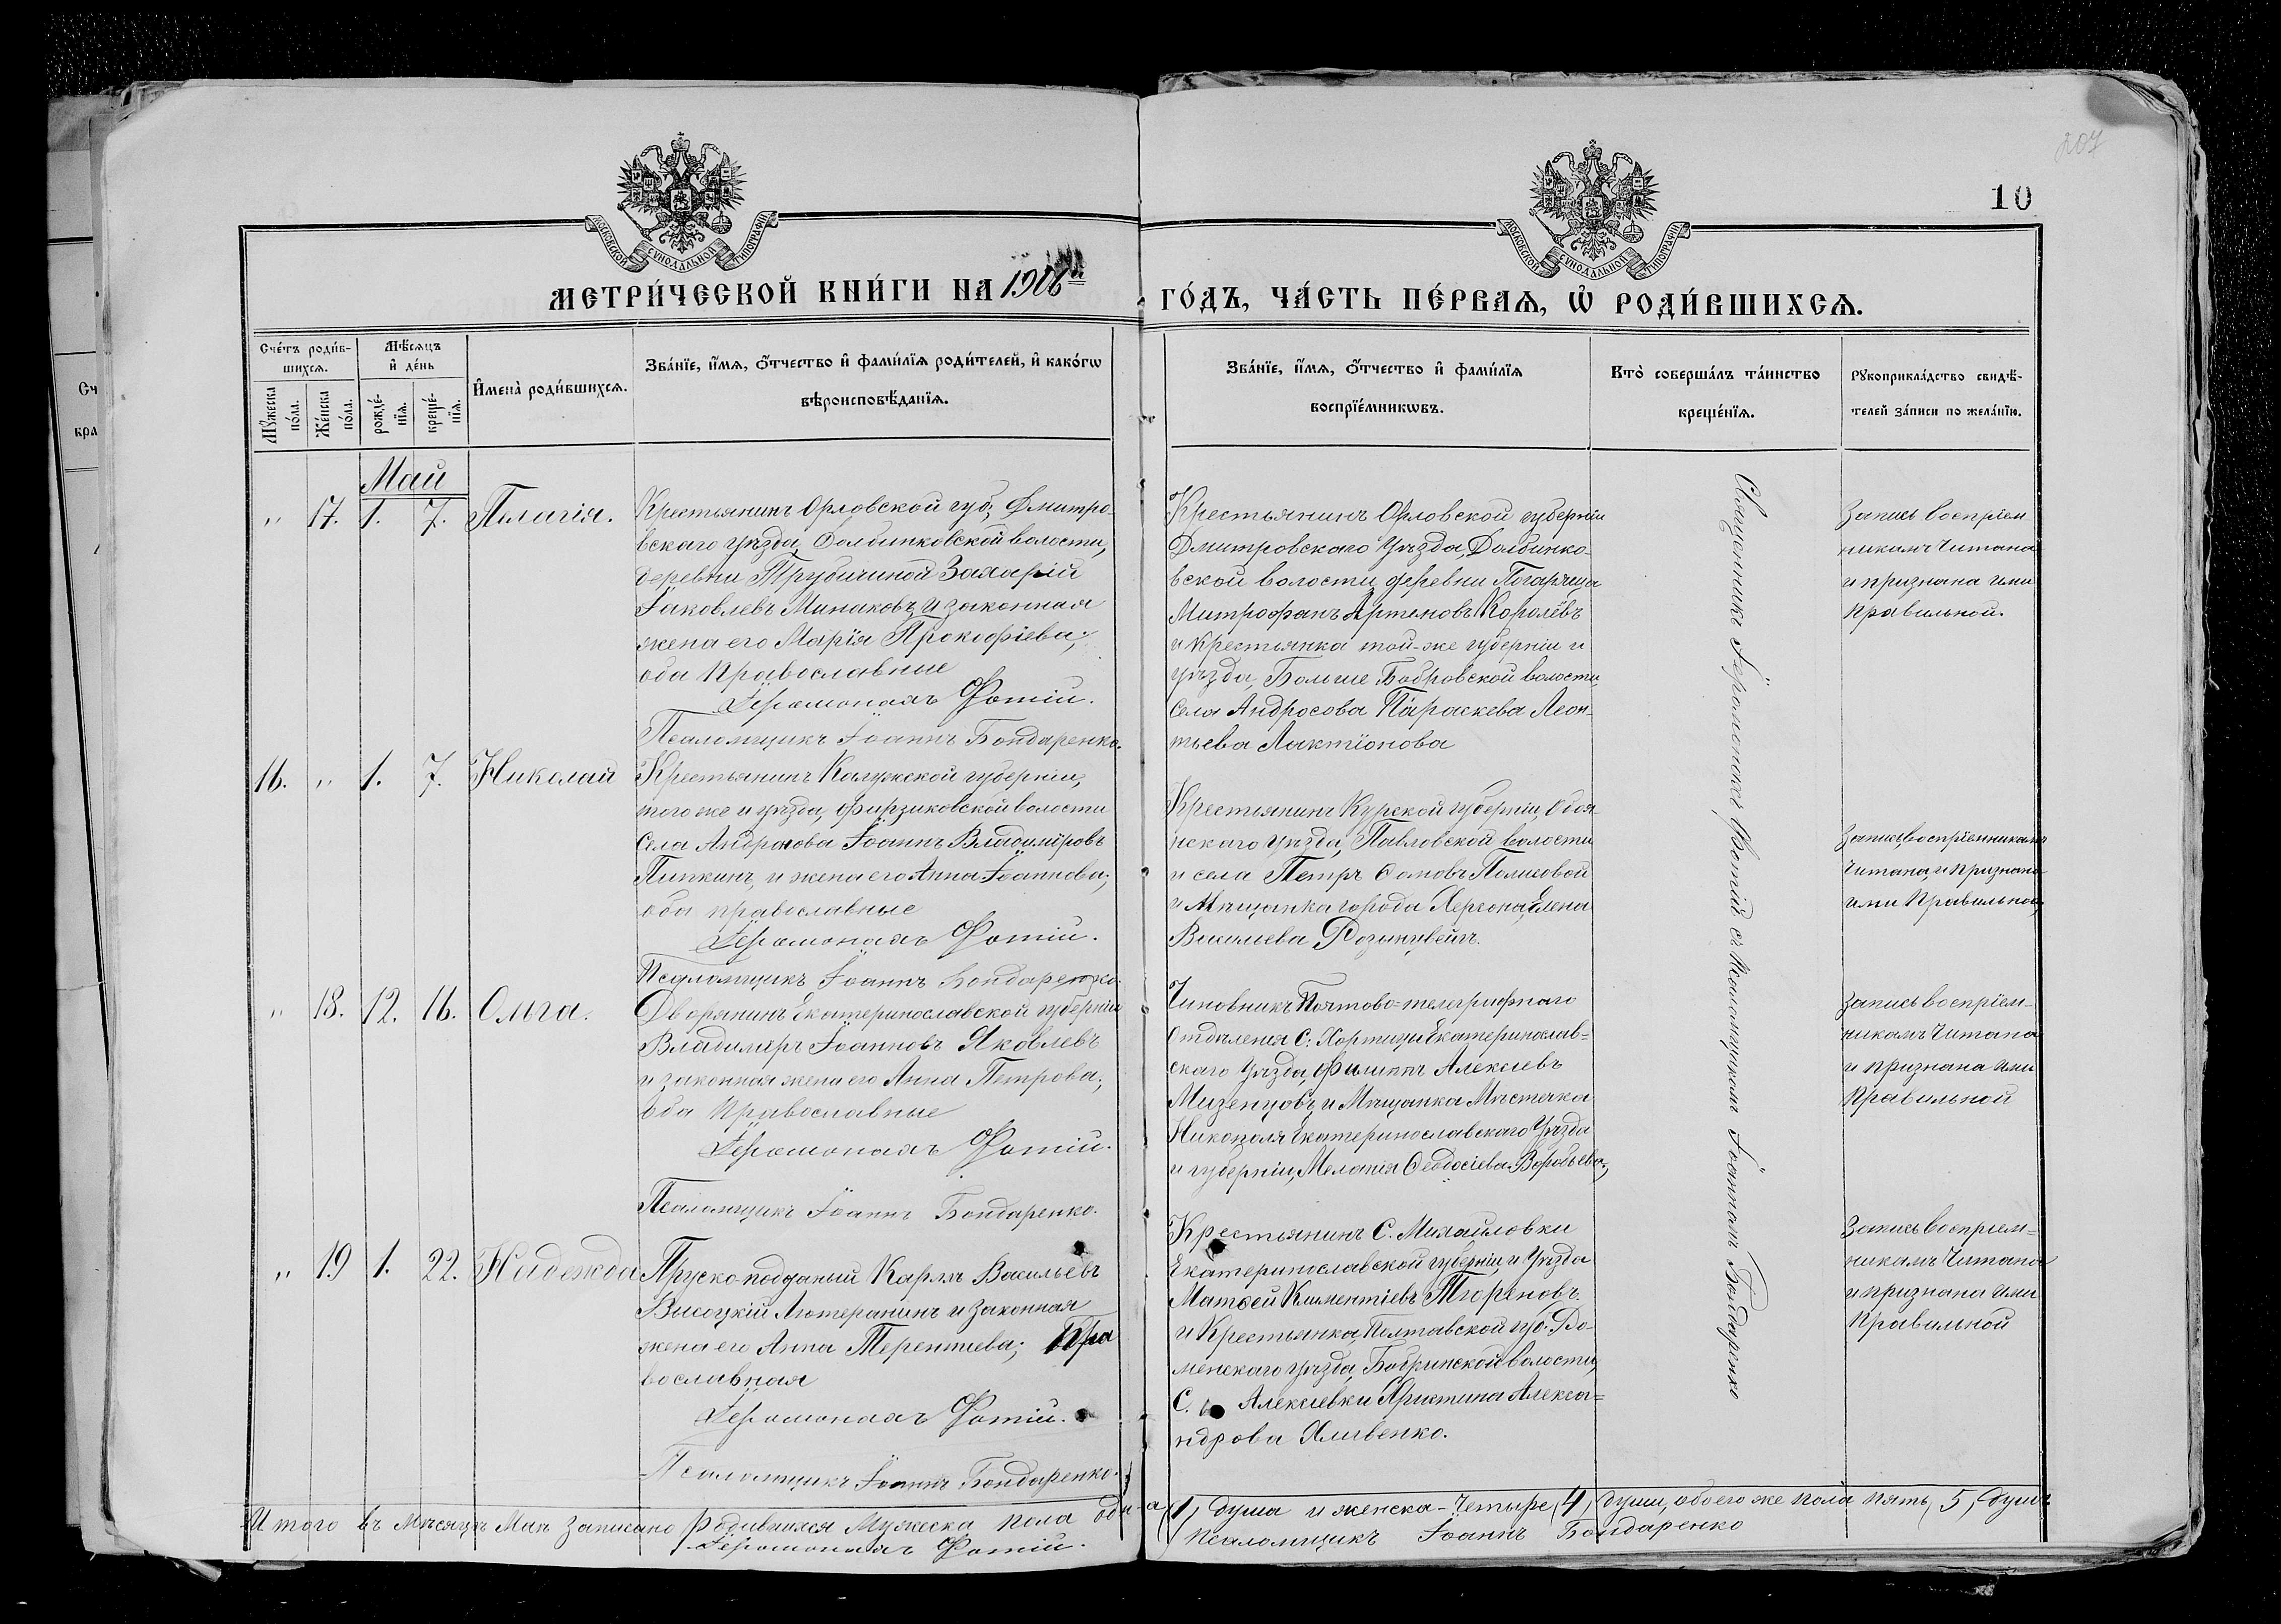 207
10
МОСКОВСКОЙ СѴНОДАЛЬНОЙ ТИПОГРАФІИ
МОСКОВСКОЙ СѴНОДАЛЬНОЙ ТИПОГРАФІИ
МЕТРИ́ЧЕСКОЙ КНИ́ГИ НА 1906й
ГО́ДЪ, ЧА́СТЬ ПЕ́РВАѦ, Ѽ РОДИ́ВШИХСѦ.
Сче́тъ роди́в-
шихсѧ.
Мѣ́сѧцъ
и҆ де́нь
Мꙋжеска по́ла.
Же́нска по́ла.
рожде́-
нїѧ.
креще́-
нїѧ.
И҆мена̀ роди́вшихсѧ.
Зва́нїе, и҆́мѧ, ѻ҆́тчество и҆ фами́лїѧ роди́телей, и҆ како́гѡ
вѣроисповѣ́данїѧ.
Зва́нїе, и҆́мѧ, ѻ҆́тчество и҆ фами́лїѧ
воспрїе́мникѡвъ.
Кто̀ соверша́лъ та́инство
креще́нїѧ.
Рꙋкоприкла́дство свидѣ́-
телей за́писи по жела́нїю.
Май
" 17. 1. 7. Пелагія.
Крестьянинъ Орловской губ., Дмитро-
вскаго уѣзда, Долбинковской волости,
деревни Трубичиной Захарій
Іаковлевъ Минаковъ, и законная
жена его Марія Прокофіева;
оба православные
Іеромонахъ Фотій.
Псаломщикъ Іоаннъ Бондаренко.
Крестьянинъ Орловской губерніи
Дмитровскаго Уѣзда, Долбинко-
вской волости, деревни Погарища
Митрофанъ Артемовъ Королёвъ
и крестьянка той-же губерніи и
уѣзда, Больше Бобровской волости,
села Андросова Параскева Леон-
тьева Лактіонова
Запись воспріем-
никамъ читана
и признана ими
правильной.
16. " 1. 7. Николай
Крестьянинъ Калужской губерніи,
того же и уѣзда, Фирзиковской волости
села Андросова Іоаннъ Владиміровъ
Пипкинъ, и жена его Анна Іоаннова;
оба православные
Іеромонахъ Фотій.
Псаломщикъ Іоаннъ Бондаренко.
Крестьянинъ Курской губерніи, Обоя-
нскаго уѣзда, Павловской волости
и села Петръ Ѳомовъ Полисовой
и Мѣщанка города Херсона, Елена
Васильева Розинцвейгъ.
Запись воспріемникамъ
читана, и признана
ими правильной.
" 18. 12. 16. Ольга.
Дворянинъ Екатеринославской губерніи
Владиміръ Іоанновъ Яковлевъ
и законная жена его Анна Петрова;
оба православные
Іеромонахъ Фотій.
Псаломщикъ Іоаннъ Бондаренко.
Чиновникъ Почтово-телеграфнаго
отдѣленія С. Хортицы Екатеринослав-
скаго Уѣзда, Филиппъ Алексіевъ
Мизенцовъ, и Мѣщанка Мѣстечка
Никополя Екатеринославскаго Уѣзда
и губерніи, Меланія Ѳеодосіева Воробьева,
Запись воспріем-
никамъ читана
и признана ими
правильной
" 19 1. 22. Надежда
Пруско-подданый Карлъ Васильевъ
Высоцкій Лютеранинъ и законная
жена его Анна Терентьева; Пра
вославная
Іеромонахъ Фотій.
Псаломщикъ Іоаннъ Бондаренко.
Крестьянинъ С. Михайловки
Екатеринославской губерніи, и Уѣзда
Матѳей Климентіевъ Тюреновъ.
и Крестьянка, Полтавской губ. Ро-
менскаго уѣзда, Бобринской волости,
С. Алексіевки Христина Алекса-
ндрова Хливенко.
Запись воспріем-
никамъ читана
и признана ими
правильной
Священникъ Іеромонахъ Фотій съ Псаломщикомъ Іоанномъ Бондаренко
Итого въ мѣсяцѣ Маѣ записано родившихся мужеска пола одна (1) душа и женска - четыре (4) души, обоего же пола пять (5) душъ
Іеромонахъ Фотій.
Псаломщикъ Іоаннъ Бондаренко